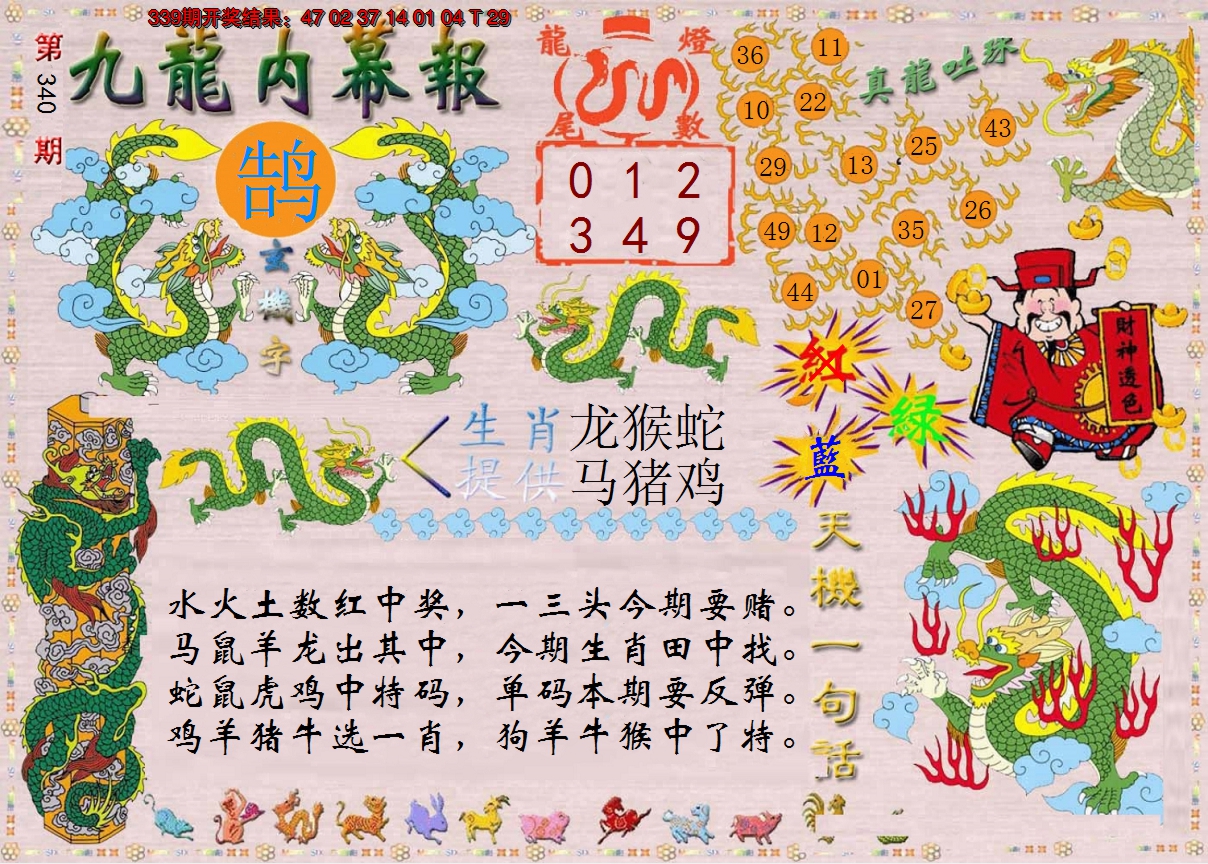 339期开奖结果：47 02 37 14 01 04 T 29
第340期
九龍内幕報
鹄
玄機字
龍燈尾數
0 1 2
3 4 9
真龍吐珠
36 11
10 22
29 13 25 43
49 12 35 26
44 01 27
財神透色
紅
綠
藍
生肖提供
龙猴蛇
马猪鸡
天機一句話
水火土数红中奖，一三头今期要赌。
马鼠羊龙出其中，今期生肖田中找。
蛇鼠虎鸡中特码，单码本期要反弹。
鸡羊猪牛选一肖，狗羊牛猴中了特。